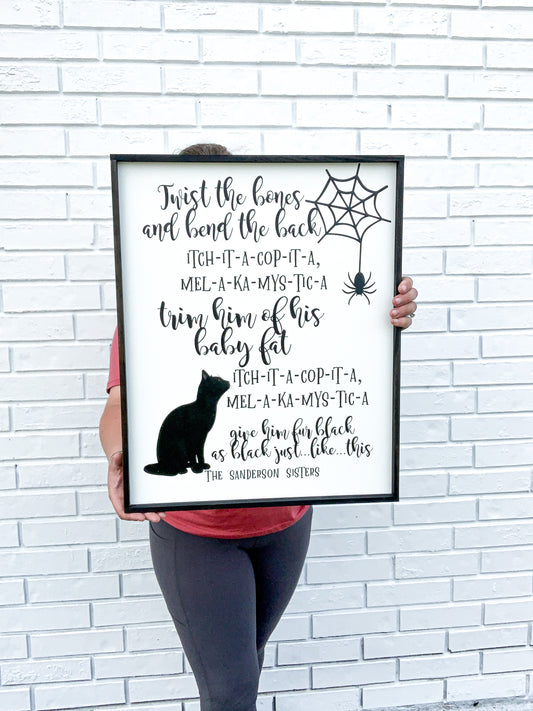 Twist the bones
and bend the back
iTCH-iT-A-COP-iT-A,
MEL-A-KA-MYS-TIC-A
trim him of his
baby fat
iTCH-iT-A-COP-iT-A,
MEL-A-KA-MYS-TIC-A
give him fur black
as black just...like...this
THE SANDERSON SISTERS